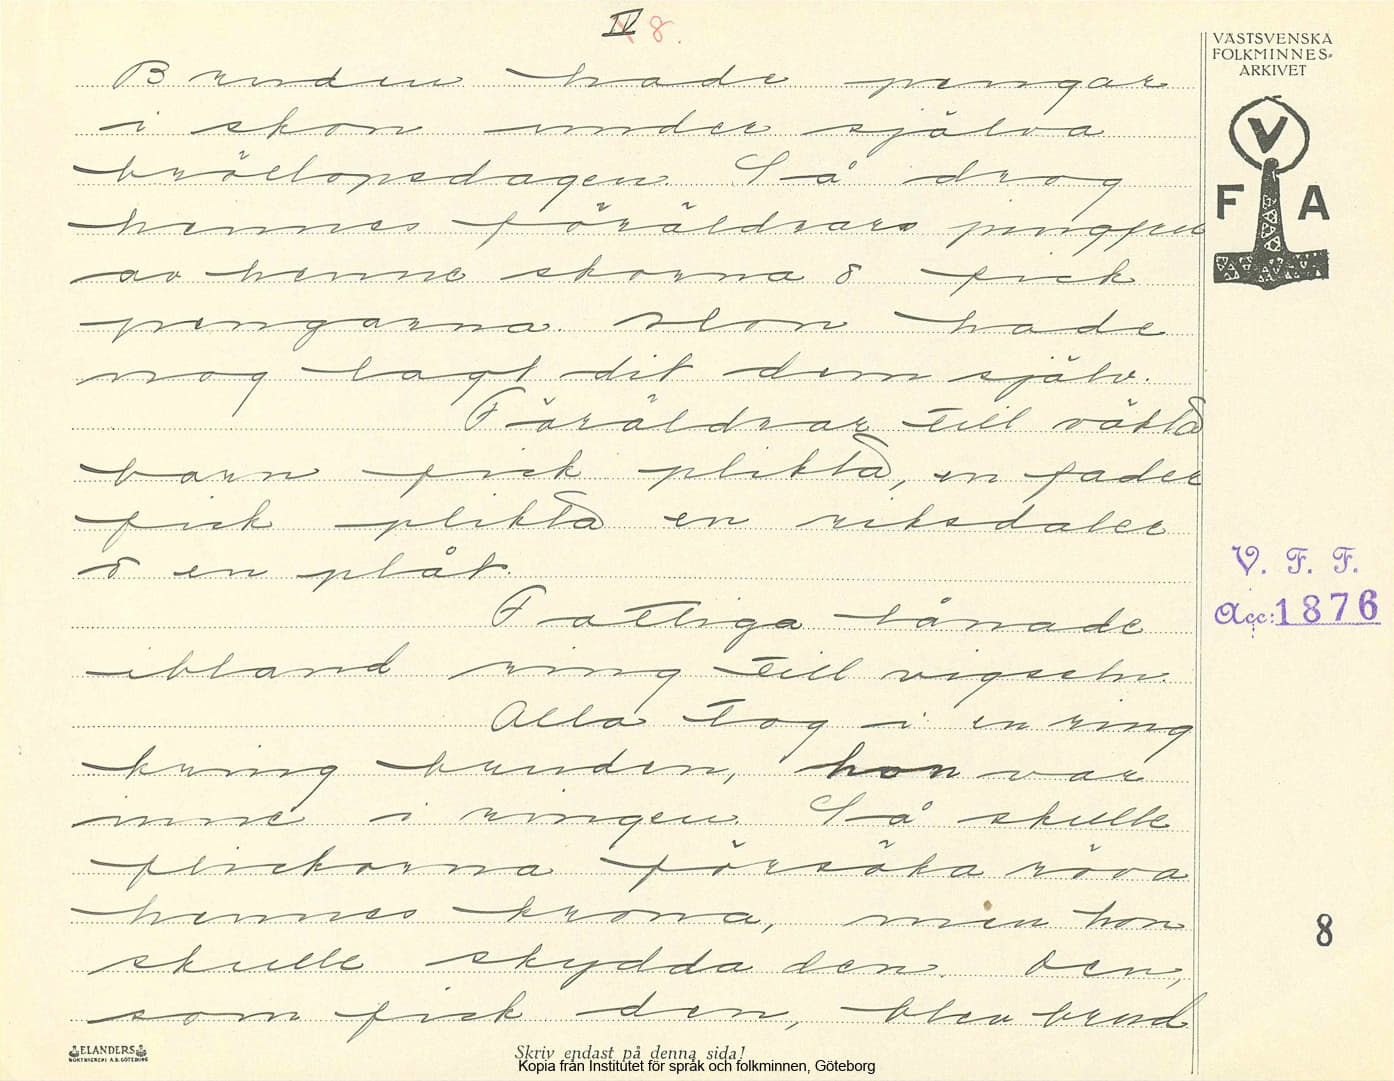 IV 8.
VÄSTSVENSKA
FOLKMINNES-
ARKIVET
V
F A
Bruden hade pengar
i skon under själva
bröllopsdagen. Så drog
hennes föräldrars
av henne skorna o fick
pengarna. Hon hade
nog lagt dit dem själv.
Föräldrar till oäkta
barn fick plikta, en fader
fick plikta en riksdaler
o en plåt.
Fattiga lånade
ibland ring till vigseln.
Alla tog i en ring
kring bruden, hon var
inne i ringen. Så skulle
flickorna försöka röva
hennes krona, men hon
skulle skydda den. Den,
som fick den, blev brud
V. F. F.
Acc: 1876
8
ELANDERS
BOKTRYCKERI A.B. GÖTEBORG
Skriv endast på denna sida!
Kopia från Institutet för språk och folkminnen, Göteborg